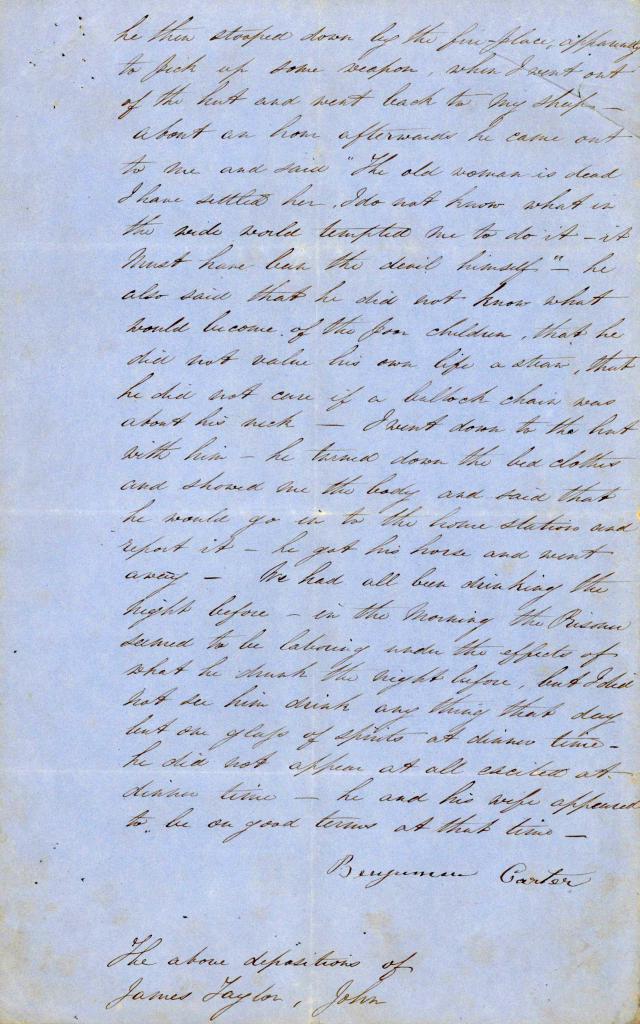 he then stooped down by the fire-place, apparently
to pick up some weapon, when I went out
of the hut and went back to my sheep –
about an hour afterwards he came out
to me and said "The old woman is dead
I have settled her, I do not know what in
the wide world tempted me to do it – it
Must have been the devil himself" – he
also said that he did not know what
would become of the poor children, that he
did not value his own life a straw, that
he did not care if a bullock chain was
about his neck – I went down to the hut
with him – he turned down the bed clothes
and showed me the body and said that
he would go in to the home station and
report it – he got his horse and went
away – We had all been drinking the
night before – in the Morning the Prisoner
seemed to be labouring under the effects of
what he drunk the night before, but I did
not see him drink any thing that day
but one glass of spirits at dinner time –
he did not appear at all excited at
dinner time – he and his wife appeared
to be on good terms at that time –
Carter
The above depositions of
James Taylor, John